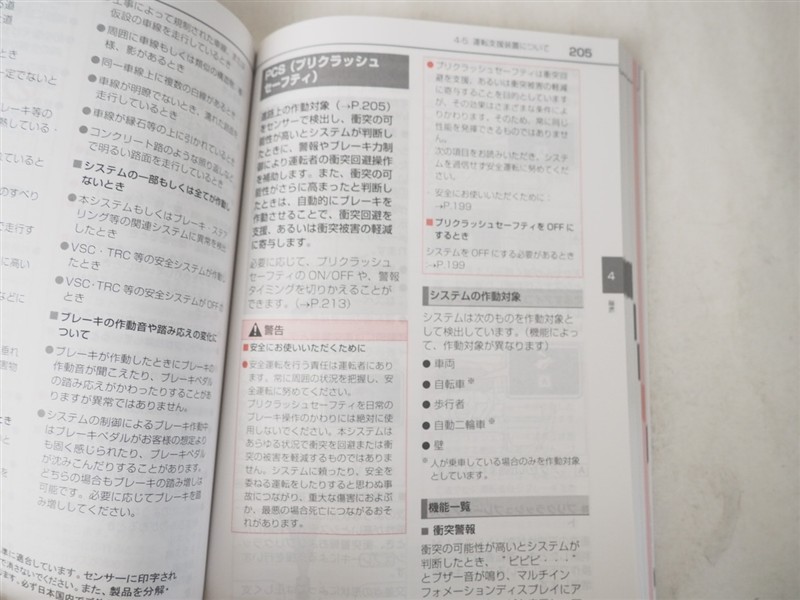 仮設の車線を走行しているとき
●周囲に車線もしくは類似の構造物、模
様、影があるとき
●同一車線上に複数の白線があるとき
●車線が明瞭でないとき、濡れた路面を
走行しているとき
●車線が縁石等の上に引かれているとき
●コンクリート路のような照り返しなど
で明るい路面を走行しているとき
■システムの一部もしくは全てが作動し
ないとき
●本システムもしくはブレーキ・ステア
リング等の関連システムに異常を検出
したとき
●VSC・TRC 等の安全システムが作動し
たとき
●VSC・TRC 等の安全システムが OFF の
とき
■ブレーキの作動音や踏み応えの変化に
ついて
●ブレーキが作動したときにブレーキの
作動音が聞こえたり、ブレーキペダル
の踏み応えがかわったりすることがあ
りますが異常ではありません。
●システムの制御によるブレーキ作動中
はブレーキペダルがお客様の想定より
も固く感じられたり、ブレーキペダル
が沈みこんだりすることがあります。
どちらの場合もブレーキの踏み増しは
可能です。必要に応じてブレーキを踏
み増ししてください。
4-5. 運転支援装置について
205
PCS（プリクラッシュ
セーフティ）
進路上の作動対象（→P.205）
をセンサーで検出し、衝突の可
能性が高いとシステムが判断し
たときに、警報やブレーキ力制
御により運転者の衝突回避操作
を補助します。また、衝突の可
能性がさらに高まったと判断し
たときは、自動的にブレーキを
作動させることで、衝突回避を
支援、あるいは衝突被害の軽減
に寄与します。
必要に応じて、プリクラッシュ
セーフティの ON/OFF や、警報
タイミングを切りかえることが
できます。（→P.213）
警告
■安全にお使いいただくために
●安全運転を行う責任は運転者にあり
ます。常に周囲の状況を把握し、安
全運転に努めてください。
プリクラッシュセーフティを日常の
ブレーキ操作のかわりには絶対に使
用しないでください。本システムは
あらゆる状況で衝突を回避または衝
突の被害を軽減するものではありま
せん。システムに頼ったり、安全を
委ねる運転をしたりすると思わぬ事
故につながり、重大な傷害におよぶ
か、最悪の場合死亡につながるおそ
れがあります。
●プリクラッシュセーフティは衝突回
避を支援、あるいは衝突被害の軽減
に寄与することを目的としています
が、その効果はさまざまな条件によ
りかわります。そのため、常に同じ
性能を発揮できるものではありませ
ん。
次の項目をお読みいただき、システ
ムを過信せず安全運転に努めてくだ
さい。
・安全にお使いいただくために：
→P.199
■プリクラッシュセーフティを OFF に
するとき
システムを OFF にする必要があるとき
→P.199
4
運転
システムの作動対象
システムは次のものを作動対象と
して検出しています。（機能によっ
て、作動対象が異なります）
●車両
●自転車※
●歩行者
●自動二輪車※
●壁
※人が乗車している場合のみを作動対象
としています。
機能一覧
■ 衝突警報
衝突の可能性が高いとシステムが
判断したとき、“ピピピ・・・”
とブザー音が鳴り、マルチイン
フォメーションディスプレイにア